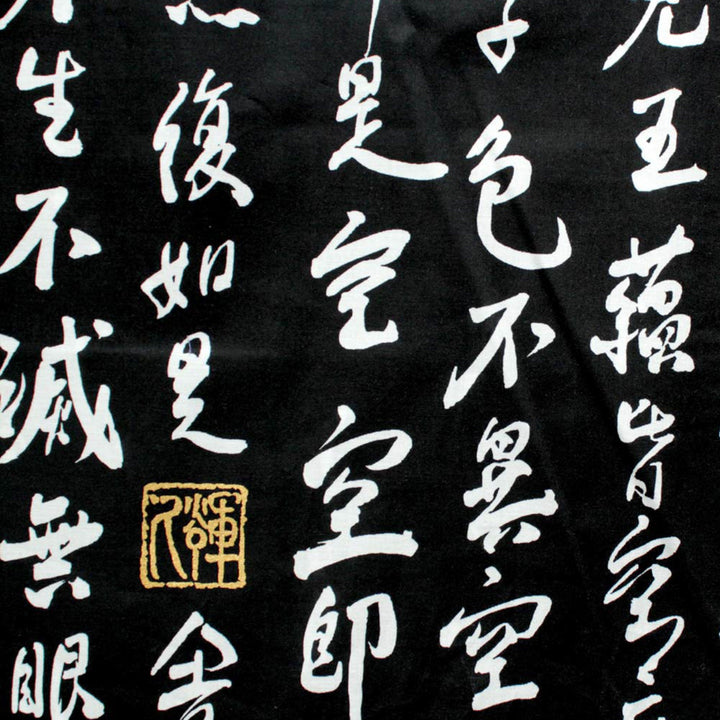 見五蘊皆空
子色不異空
是空空即
復如是舍
生不滅無眼